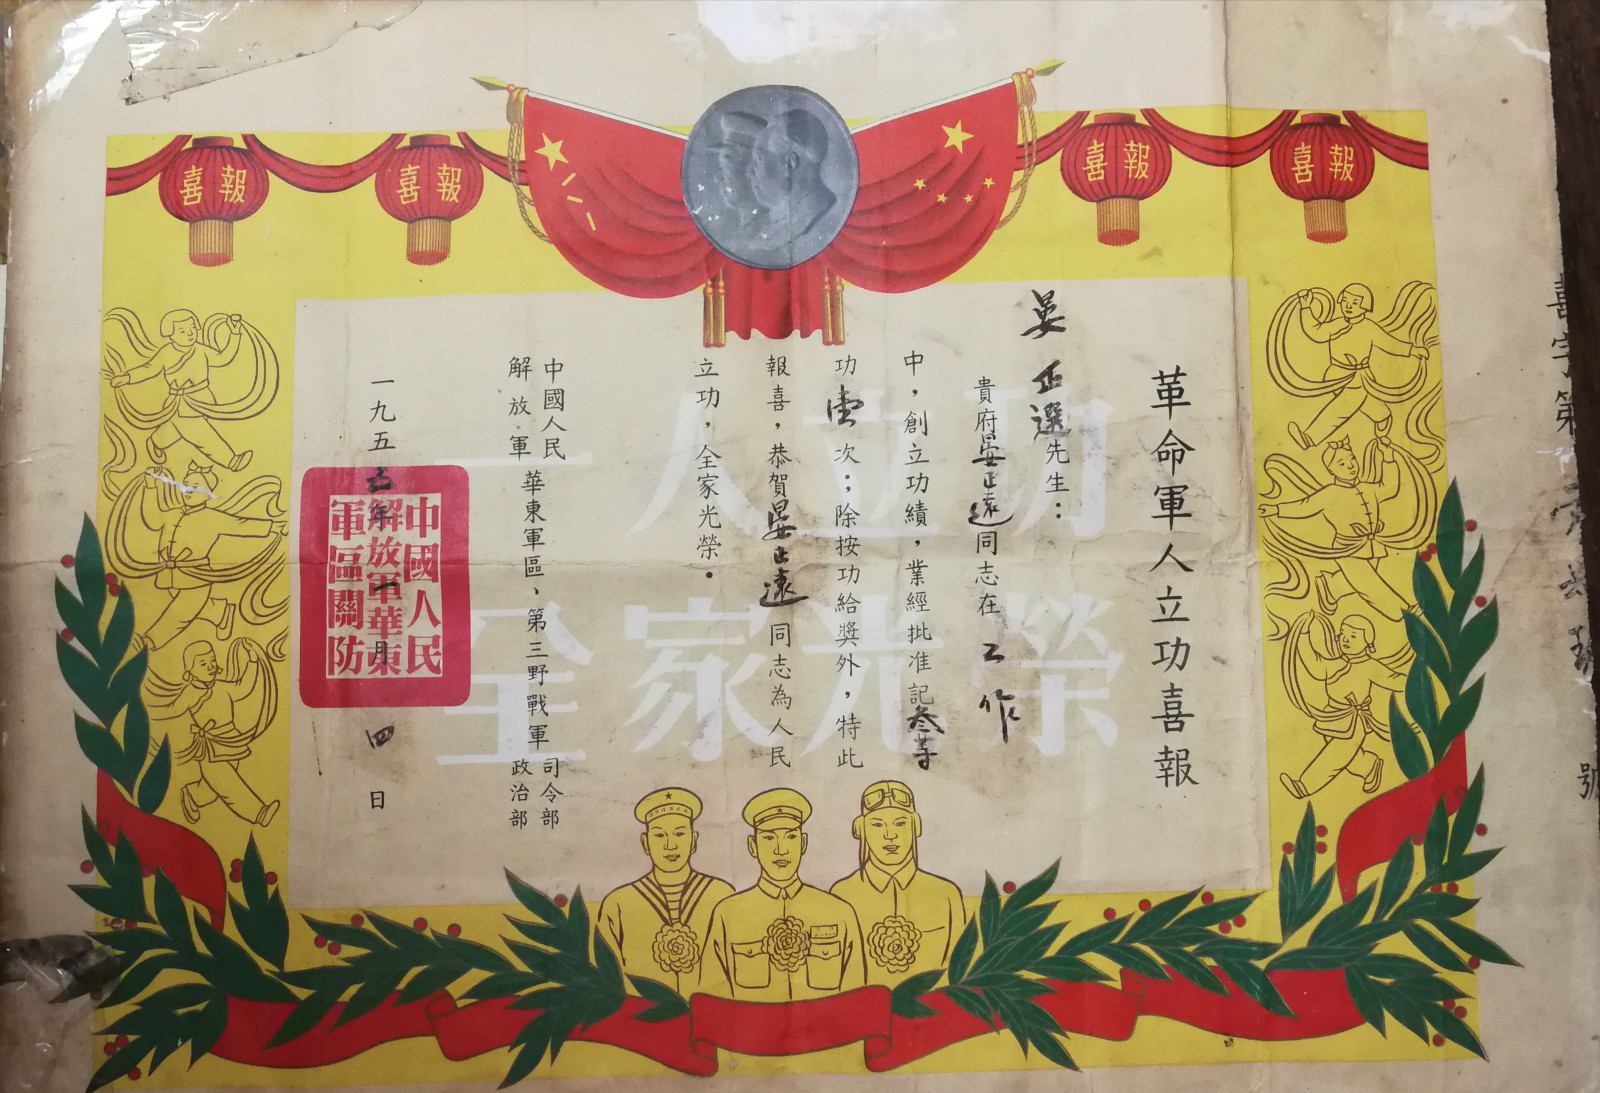 喜報
喜報
喜報
喜報
革命軍人立功喜報
晏正選先生：
貴府晏正遠同志在工作
中，創立功績，業經批准記叁等
功壹次；除按功給獎外，特此
報喜，恭賀晏正遠同志為人民
立功，全家光榮．
中國人民
解放軍
華東軍區、第三野戰軍
司令部
政治部
一九五 年一月四日
中國人民
解放軍華東
軍區關防
一人立功
全家光榮
喜字第
號